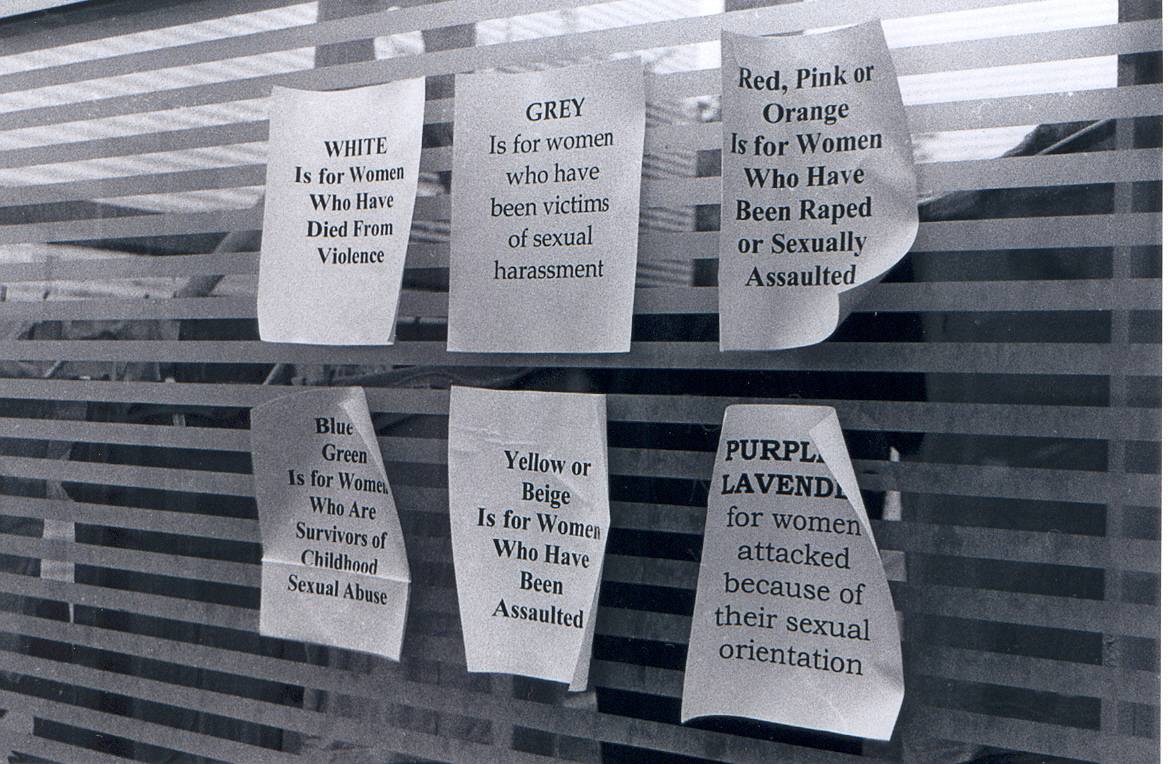 WHITE
Is for Women
Who Have
Died From
Violence
GREY
Is for women
who have
been victims
of sexual
harassment
Red, Pink or
Orange
Is for Women
Who Have
Been Raped
or Sexually
Assaulted
Blue
Green
Is for Women
Who Are
Survivors of
Childhood
Sexual Abuse
Yellow or
Beige
Is for Women
Who Have
Been
Assaulted
PURPL
LAVEND
for women
attacked
because of
their sexual
orientation